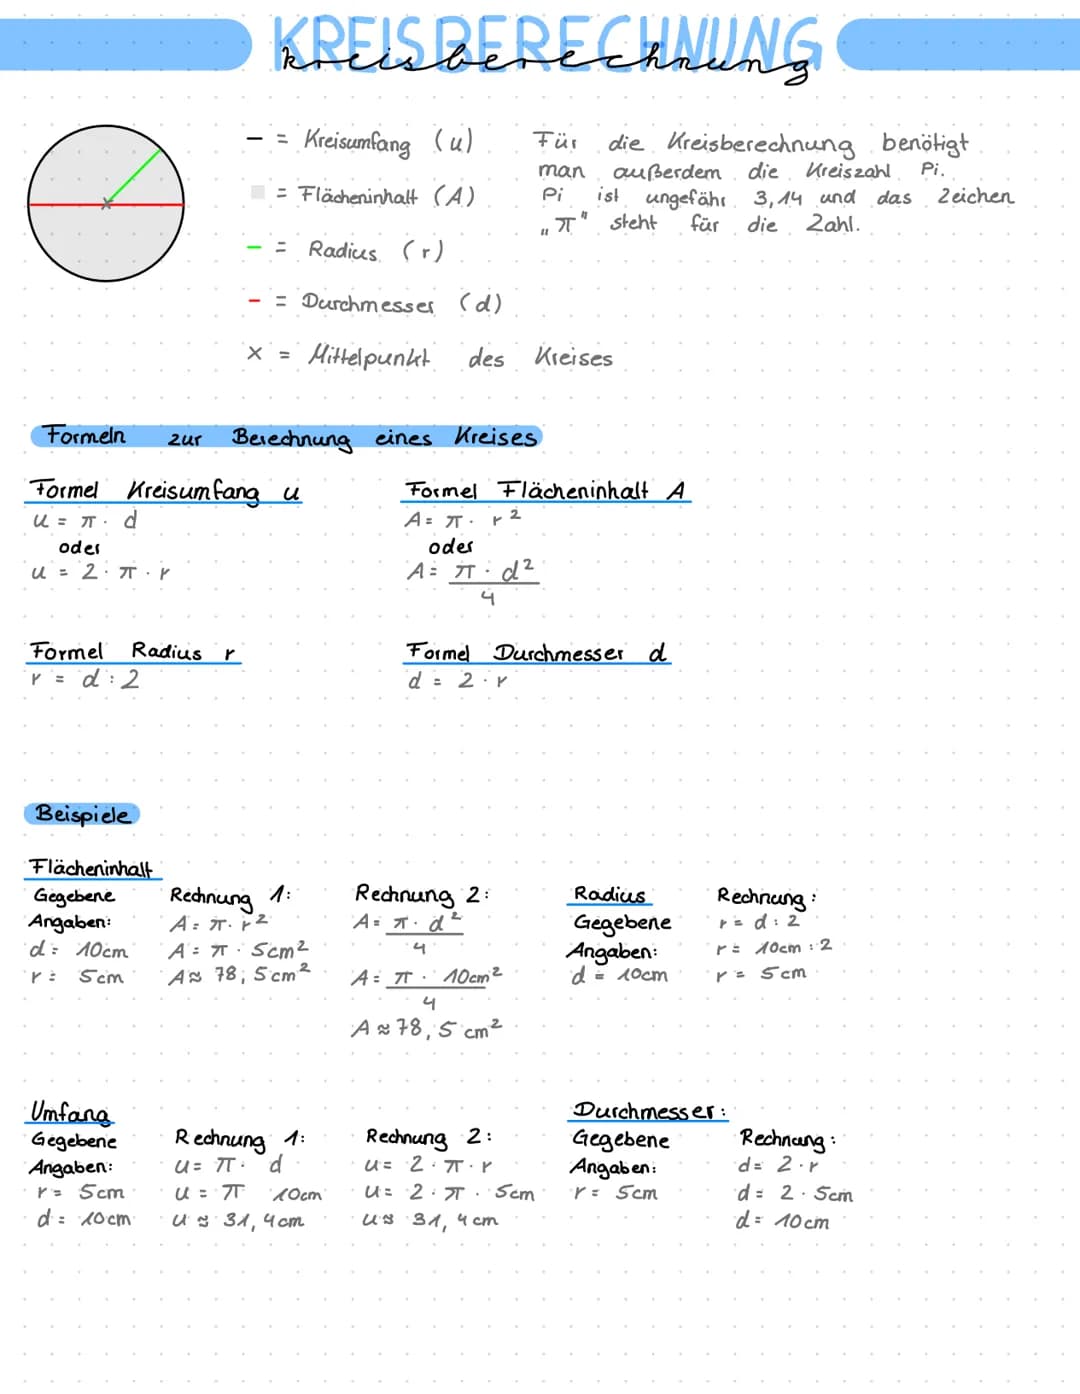 KREISBERECHNUNG
kreisberechnung
– = Kreisumfang (u)
= Flächeninhalt (A)
– = Radius (r)
– = Durchmesser (d)
x = Mittelpunkt des Kreises
Für die Kreisberechnung benötigt
man außerdem die Kreiszahl Pi.
Pi ist ungefähr 3,14 und das Zeichen
„π" steht für die Zahl.
Formeln zur Berechnung eines Kreises
Formel Kreisumfang u
u = π · d
oder
u = 2 · π · r
Formel Flächeninhalt A
A = π · r²
oder
A = π · d²
4
Formel Radius r
r = d : 2
Formel Durchmesser d
d = 2 · r
Beispiele
Flächeninhalt
Gegebene
Angaben:
d = 10cm
r = 5cm
Rechnung 1:
A = π · r²
A = π · 5cm²
A ≈ 78,5cm²
Rechnung 2:
A = π · d²
4
A = π · 10cm²
4
A ≈ 78,5 cm²
Radius
Gegebene
Angaben:
d = 10cm
Rechnung:
r = d : 2
r = 10cm : 2
r = 5cm
Umfang
Gegebene
Angaben:
r = 5cm
d = 10cm
Rechnung 1:
u = π · d
u = π 10cm
u ≈ 31,4cm
Rechnung 2:
u = 2 · π · r
u = 2 · π · 5cm
u ≈ 31,4cm
Durchmesser:
Gegebene
Angaben:
r = 5cm
Rechnung:
d = 2 · r
d = 2 · 5cm
d = 10cm